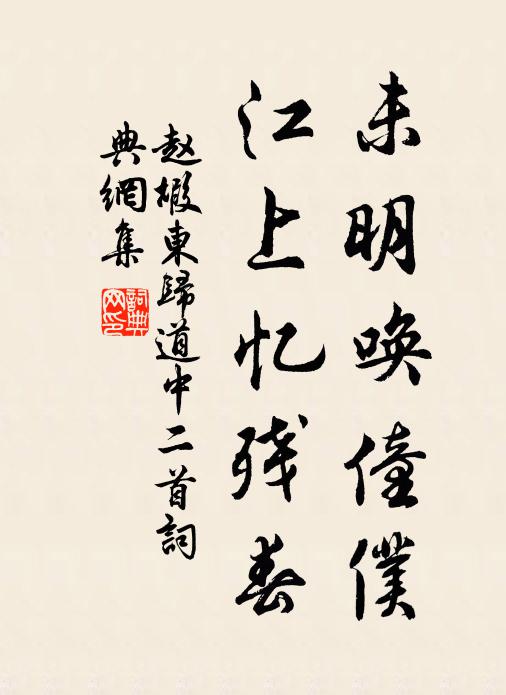 未明唤僮僕
江上忆残春
赵嘏東歸道中二首詞
典網集
詞典网印